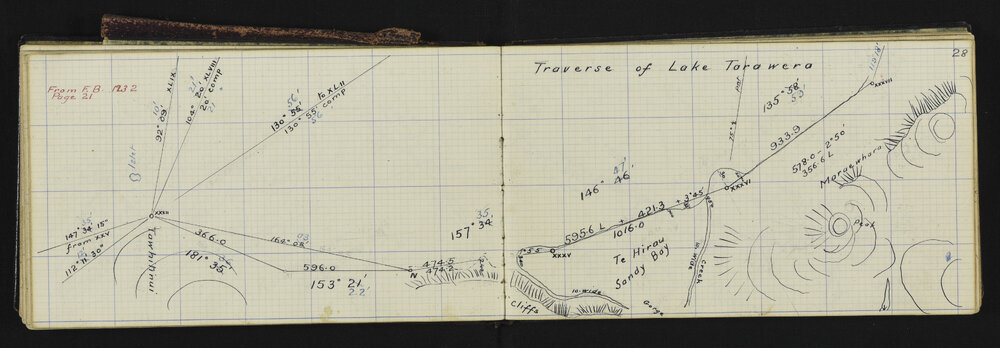 From F.B. 1232
Page 21
92° 09'
10'
XLIX
21'
104° 20' XLVIII
20' comp
56'
130° 55' to XLII
130° 55' comp
56'
B Islet
XXXIV
35'
147° 34' 15"
from XXV
112° 11' 30"
Tawhitinui
366.0
181° 35'
164° 08'
596.0
153° 21'
22'
N
474.5
474.2
35'
157° 34'
28
Traverse of Lake Tarawera
XXXVII
135° 38'
933.9
578.0 - 2° 50'
356.6 L
Moraewhara
47'
146° 46'
XXXVI
+ 3° 45'
421.3
595.6 L
1016.0
XXXV
Te Hirau
Sandy Bay
10. wide
Creek
10. wide
Gorge
Cliffs
Peak
N